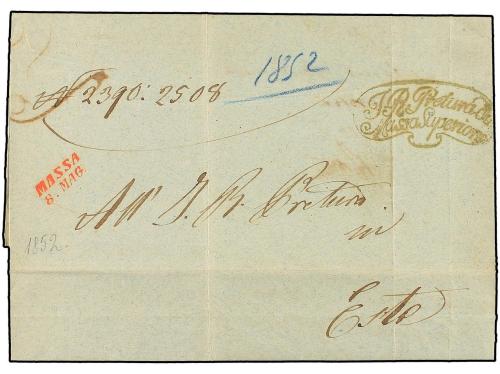 1852
N° 2390: 2508
I. R. Pretura di
Massa Superiore
MASSA
8. MAG.
All' I. R. Pretura
in
1852.
Este